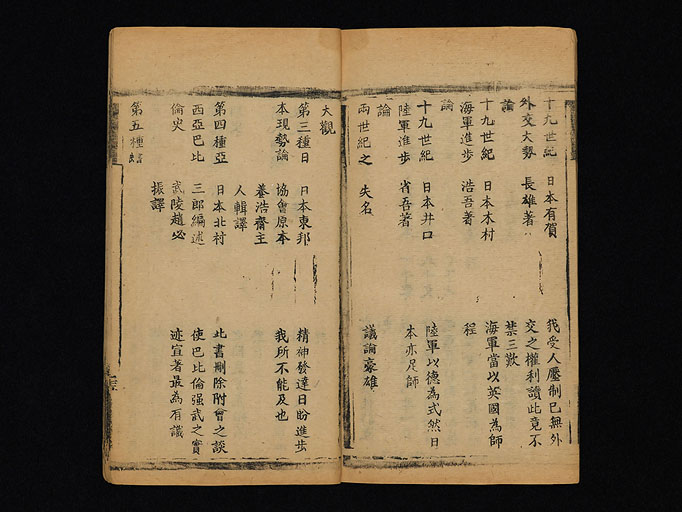 十九世紀 日本有賀 我受人壓制已無外
外交大勢 長雄著 交之權利讀此竟不
論 禁三歎
十九世紀 日本木村 海軍當以英國為師
海軍進步 浩吾著 程
論
十九世紀 日本井口 陸軍以德為式然日
陸軍進步 省吾著 本亦足師
論
兩世紀之 失名 議論豪雄
大觀
第三種日 日本東邦 精神發達日盼進步
本現勢論 協會原本 我所不能及也
養浩齋主
人輯譯
第四種亞 日本北村 此書刪除附會之談
西亞巴比 三郎編述 使巴比倫强武之實
倫史 武陵趙必 迹宣著最為有識
振譯
第五種